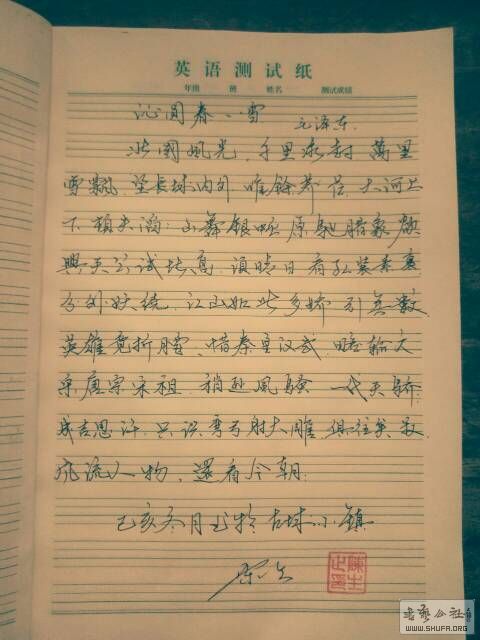 英语测试纸
年组 班 姓名 测试成绩
沁园春·雪 毛泽东
北國風光 千里冰封 萬里
雪飘 望长城内外 唯馀莽莽 大河上
下 頓失滔滔 山舞银蛇 原馳腊象 欲
與天公试比高 须晴日 看红装素裹
分外妖娆 江山如此多娇 引無數
英雄竞折腰 惜秦皇汉武 略输文
采 唐宗宋祖 稍逊風骚 一代天骄
成吉思汗 只识弯弓射大雕 俱往矣 数
风流人物 還看今朝
乙亥冬月书於古城小镇
陳生之印
书艺公社
WWW.SHUFA.ORG